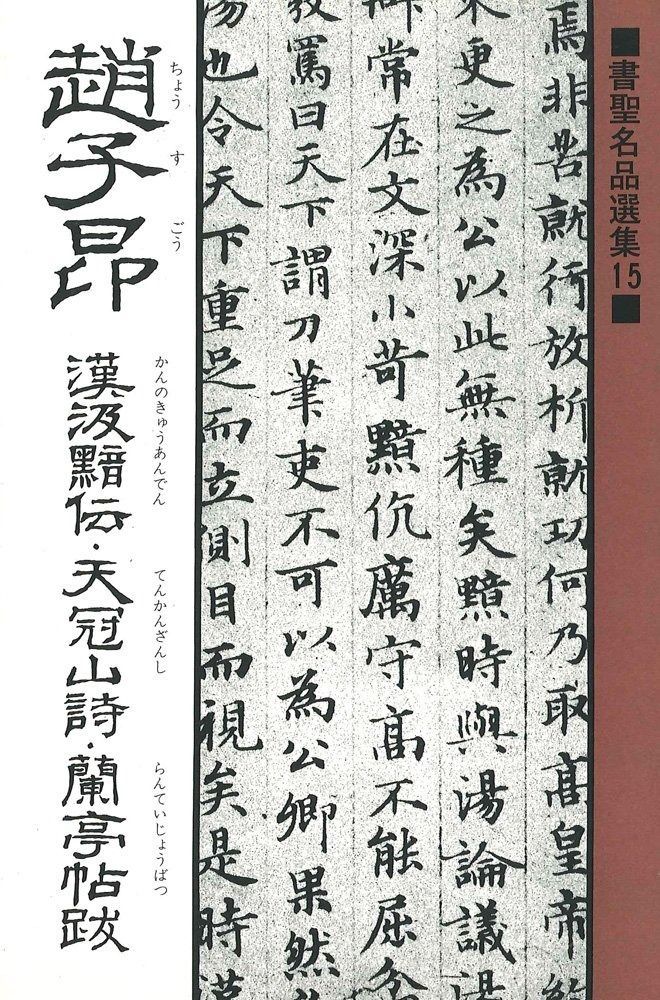 ■書聖名品選集15■
焉非苦就行放析就功何乃取高皇帝
束更之為公以此無種矣黯時與湯論議湯
辯常在文深小苛黯伉厲守高不能屈忿
發罵曰天下謂刀筆吏不可以為公卿果然
湯也令天下重足而立側目而視矣是時漢
ちょう す ごう
趙子昂
かんのきゅうあんでん てんかんざんし らんていじょうばつ
漢汲黯伝・天冠山詩・蘭亭帖跋